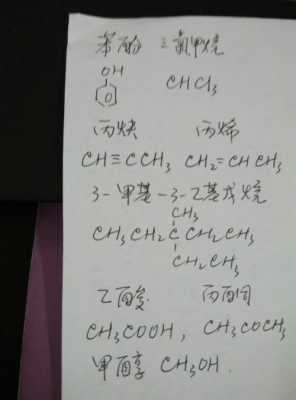 苯酚 三氯甲烷
OH
CHCl₃
丙炔 丙烯
CH≡CCH₃ CH₂=CHCH₃
3-甲基-3-乙基戊烷
CH₃
CH₃CH₂CCH₂CH₃
CH₂CH₃
乙酸 丙酮
CH₃COOH, CH₃COCH₃
甲醇 CH₃OH.